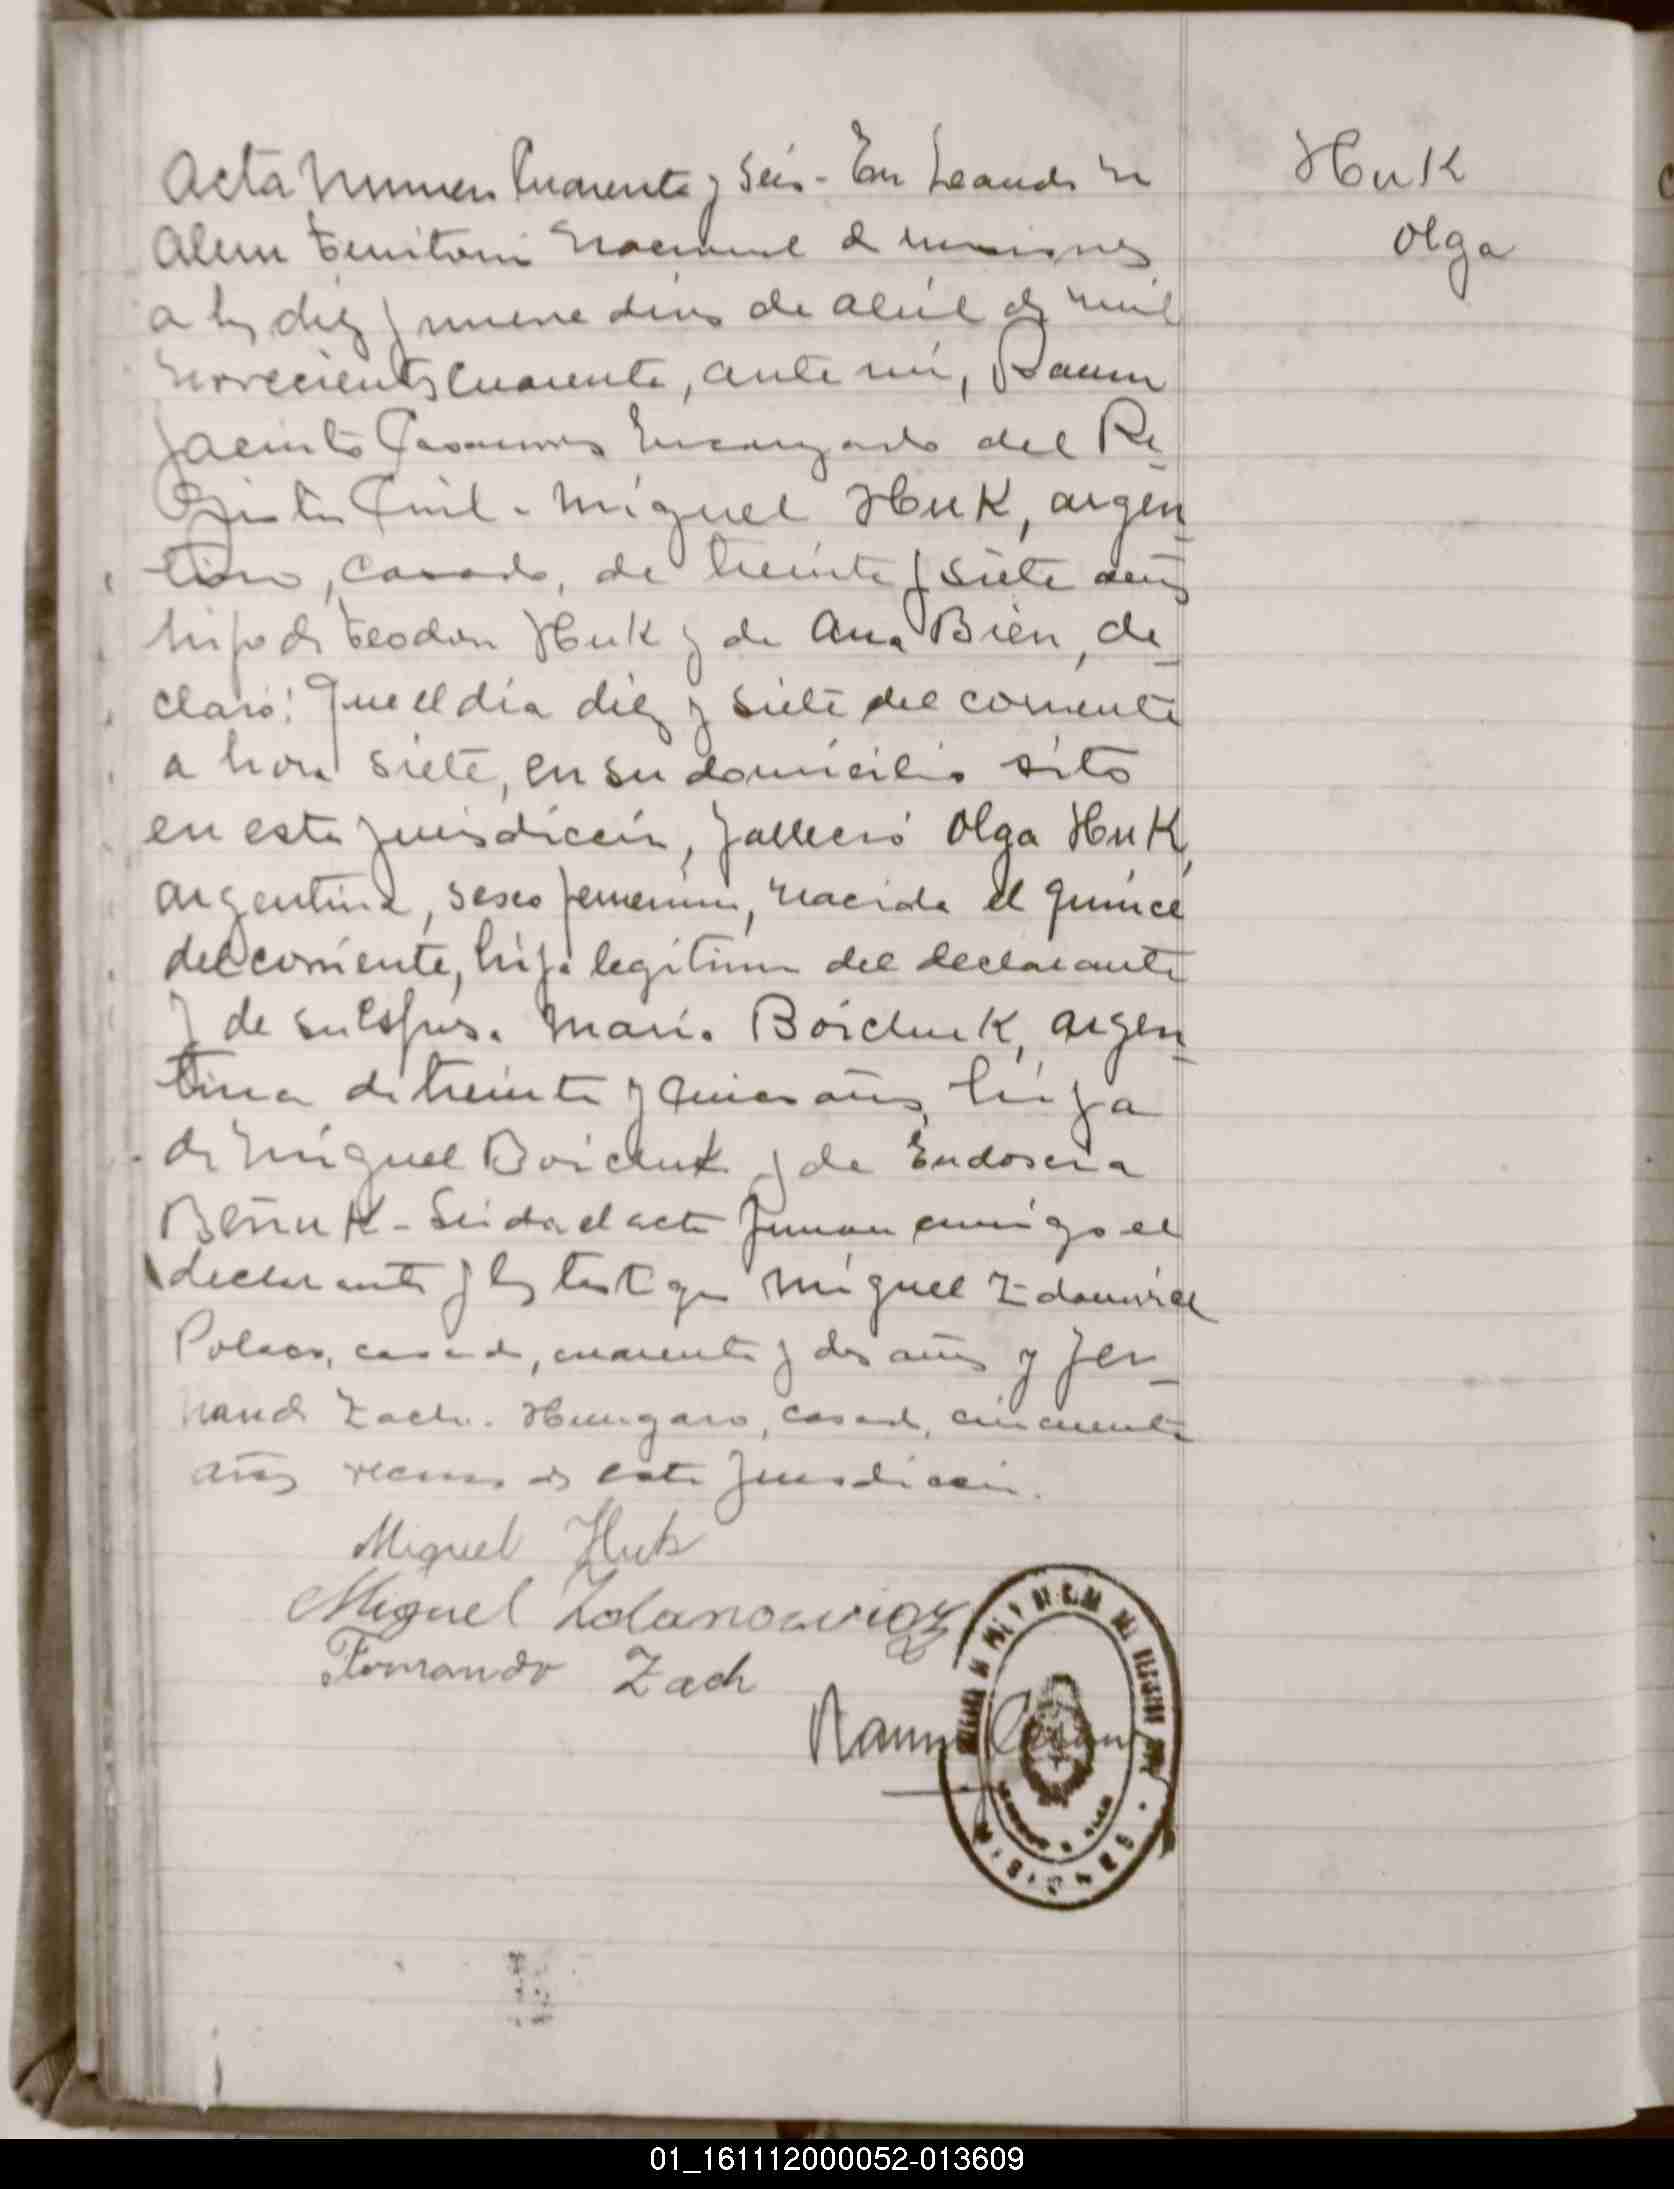 Acta Numero Cuarenta y Seis - En Leandro N
Alem Territorio Nacional de Misiones
a los diez y nueve dias de abril de mil
novecientos cuarenta, ante mi, Ramon
Jacinto Encargado del Re_
gistro Civil - Miguel Huk, argen_
tino, casado, de treinta y siete años
hijo de Teodoro Huk y de Ana Bien, de_
claró: Que el día diez y siete del corriente
a hora siete, en su domicilio sito
en esta jurisdiccion, falleció Olga Huk,
argentina, sexo femenino, nacida el quince
del corriente, hija legitima del declarante
y de su esposa Maria Boichuk, argen_
tina de treinta y años, hija
de Miguel Boichuk y de Eudoscia
Beñuk - Leida el acta firman conmigo el
declarante y los testigos Miguel Zdanovicz
Polaco, casado, cuarenta y dos años y Fer_
nando Zach. Hungaro, casado, cincuenta
años vecinos de esta jurisdiccion.
Miguel Huk
Miguel Zdanowicz
Fernando Zach
Ramon
Huk
Olga
01_161112000052-013609